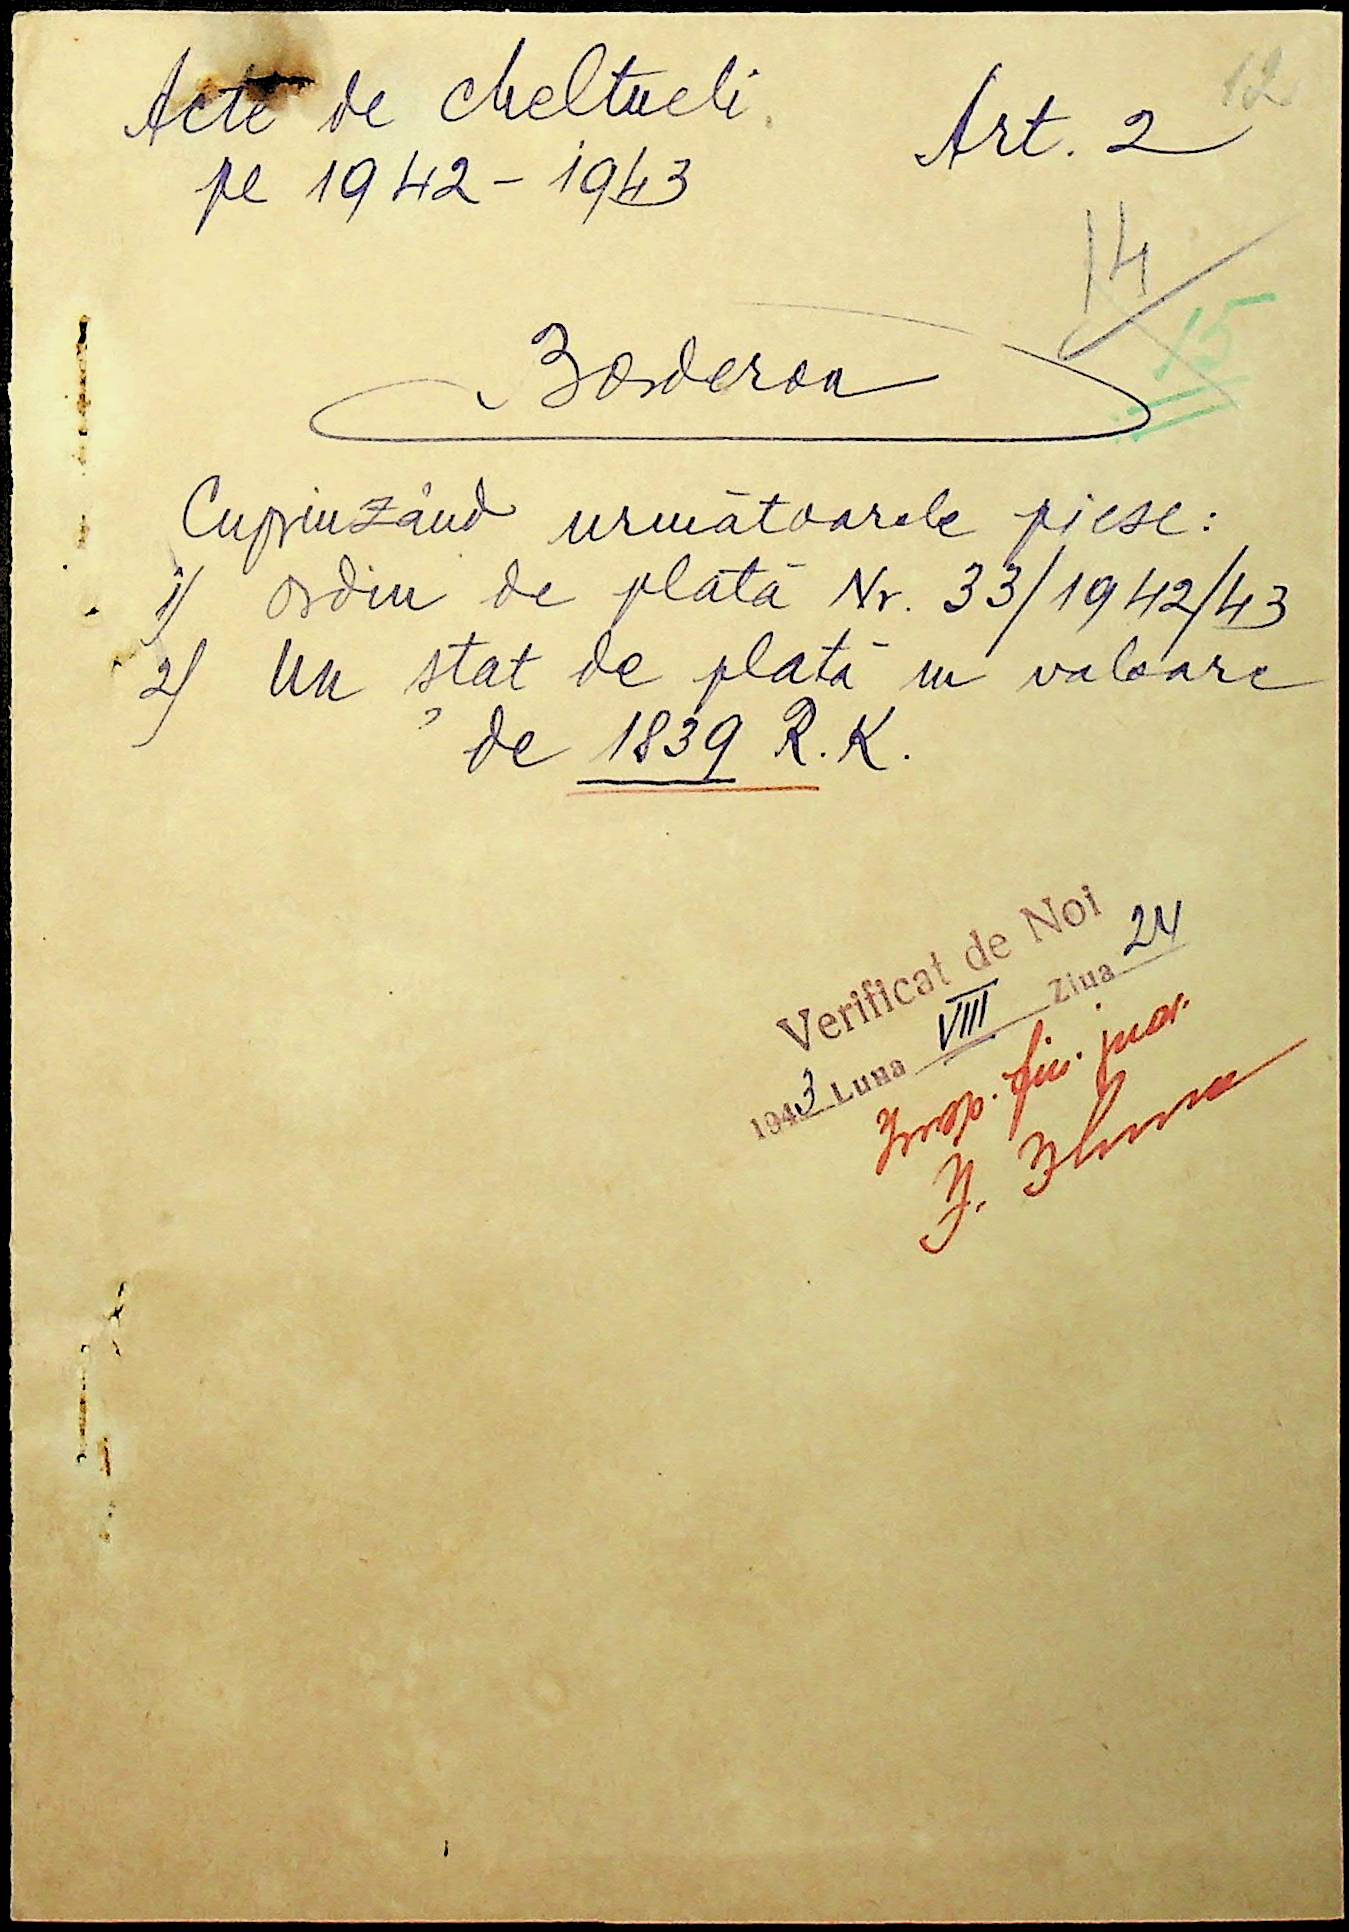 12
Acte de cheltueli
pe 1942-1943
Art. 2
14
15
Borderou
Cuprinzând următoarele piese:
1) ordin de plată Nr. 33/1942/43
2) Un stat de plată în valoare
de 1839 R.K.
Verificat de Noi
1943 Luna VIII Ziua 24
Insp. fin. jud.